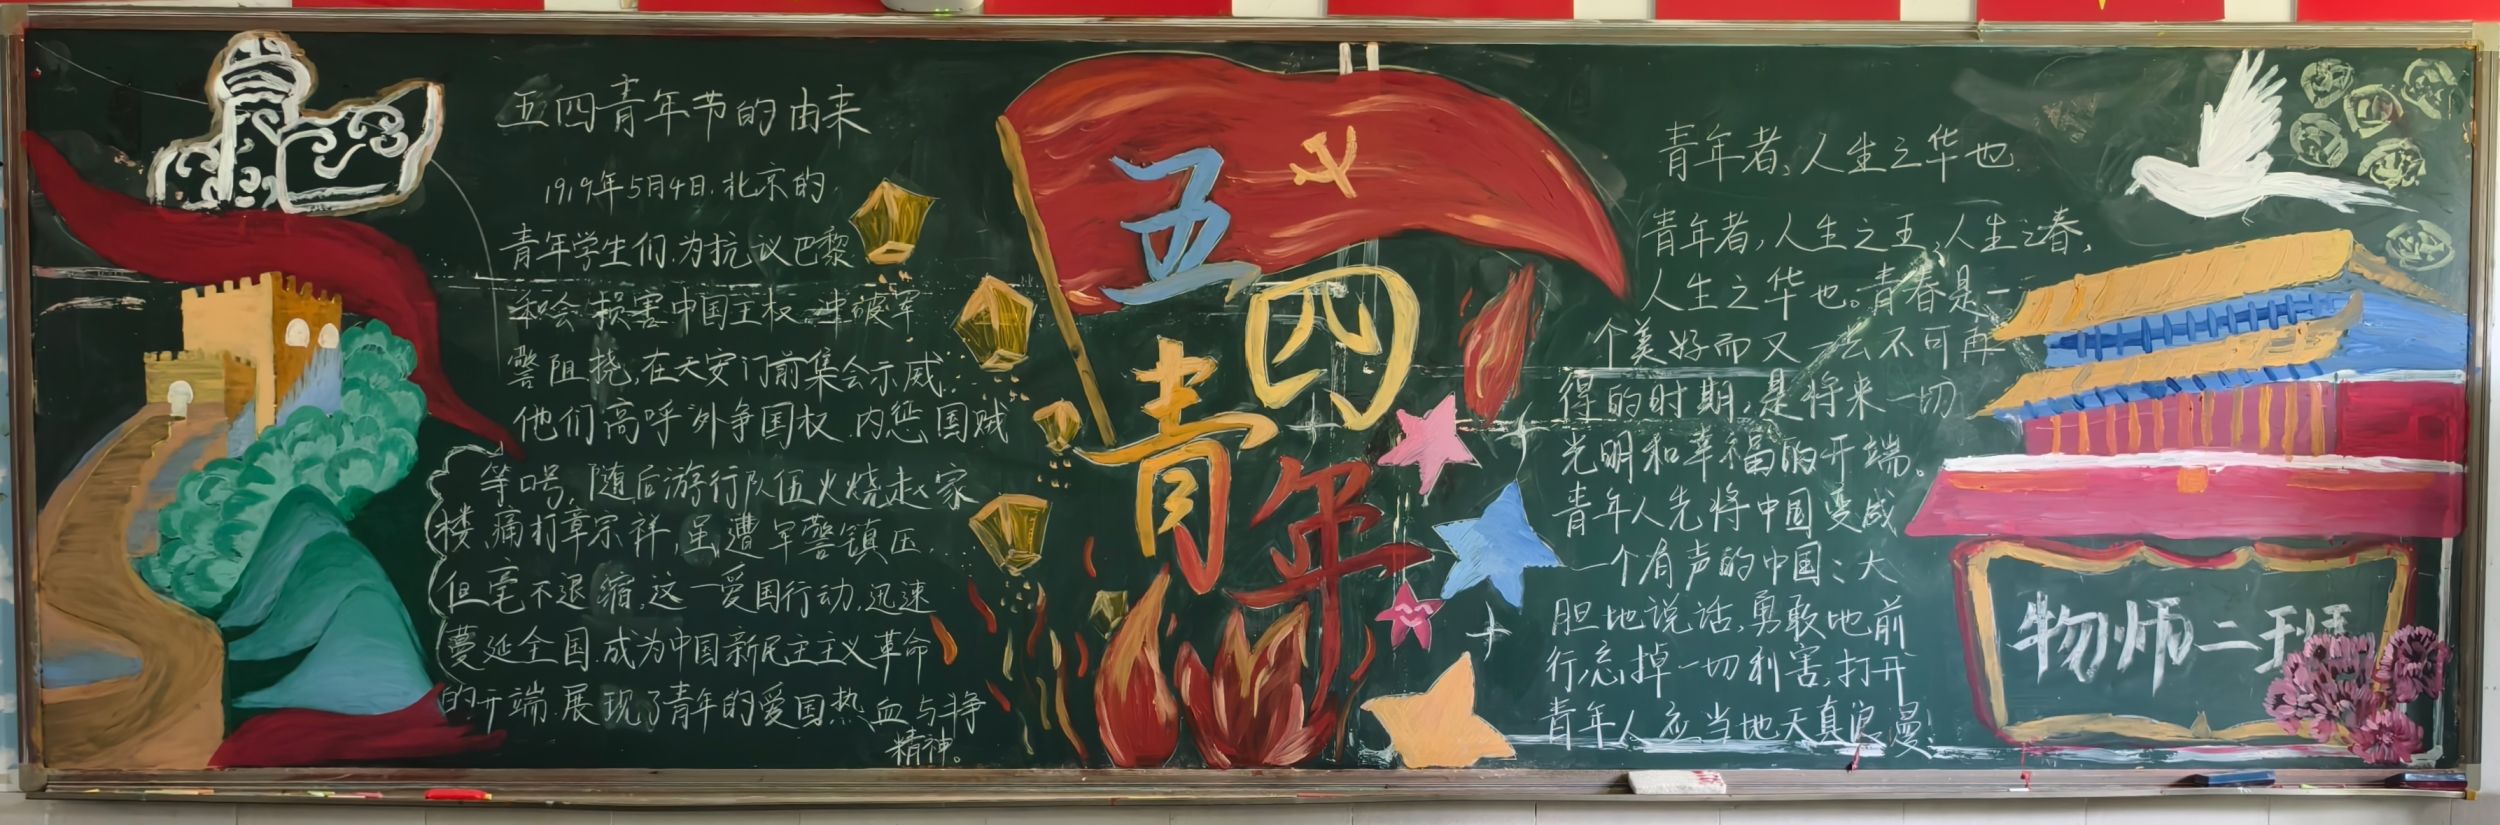 五四青年节的由来
1919年5月4日，北京的
青年学生们，为抗议巴黎
和会损害中国主权，冲破军
警阻挠，在天安门前集会示威，
他们高呼外争国权，内惩国贼
等口号，随后游行队伍火烧赵家
楼、痛打章宗祥，虽遭军警镇压，
但毫不退缩，这一爱国行动，迅速
蔓延全国，成为中国新民主主义革命
的开端，展现了青年的爱国热血与斗争
精神。
五四
青年
青年者，人生之华也
青年者，人生之王，人生之春，
人生之华也。青春是一
个美好而又一去不可再
得的时期，是将来一切
光明和幸福的开端。
青年人先将中国变成
一个有声的中国；大
胆地说话，勇敢地前
行，忘掉一切利害，打开
青年人应当地天真浪漫！
物师二班